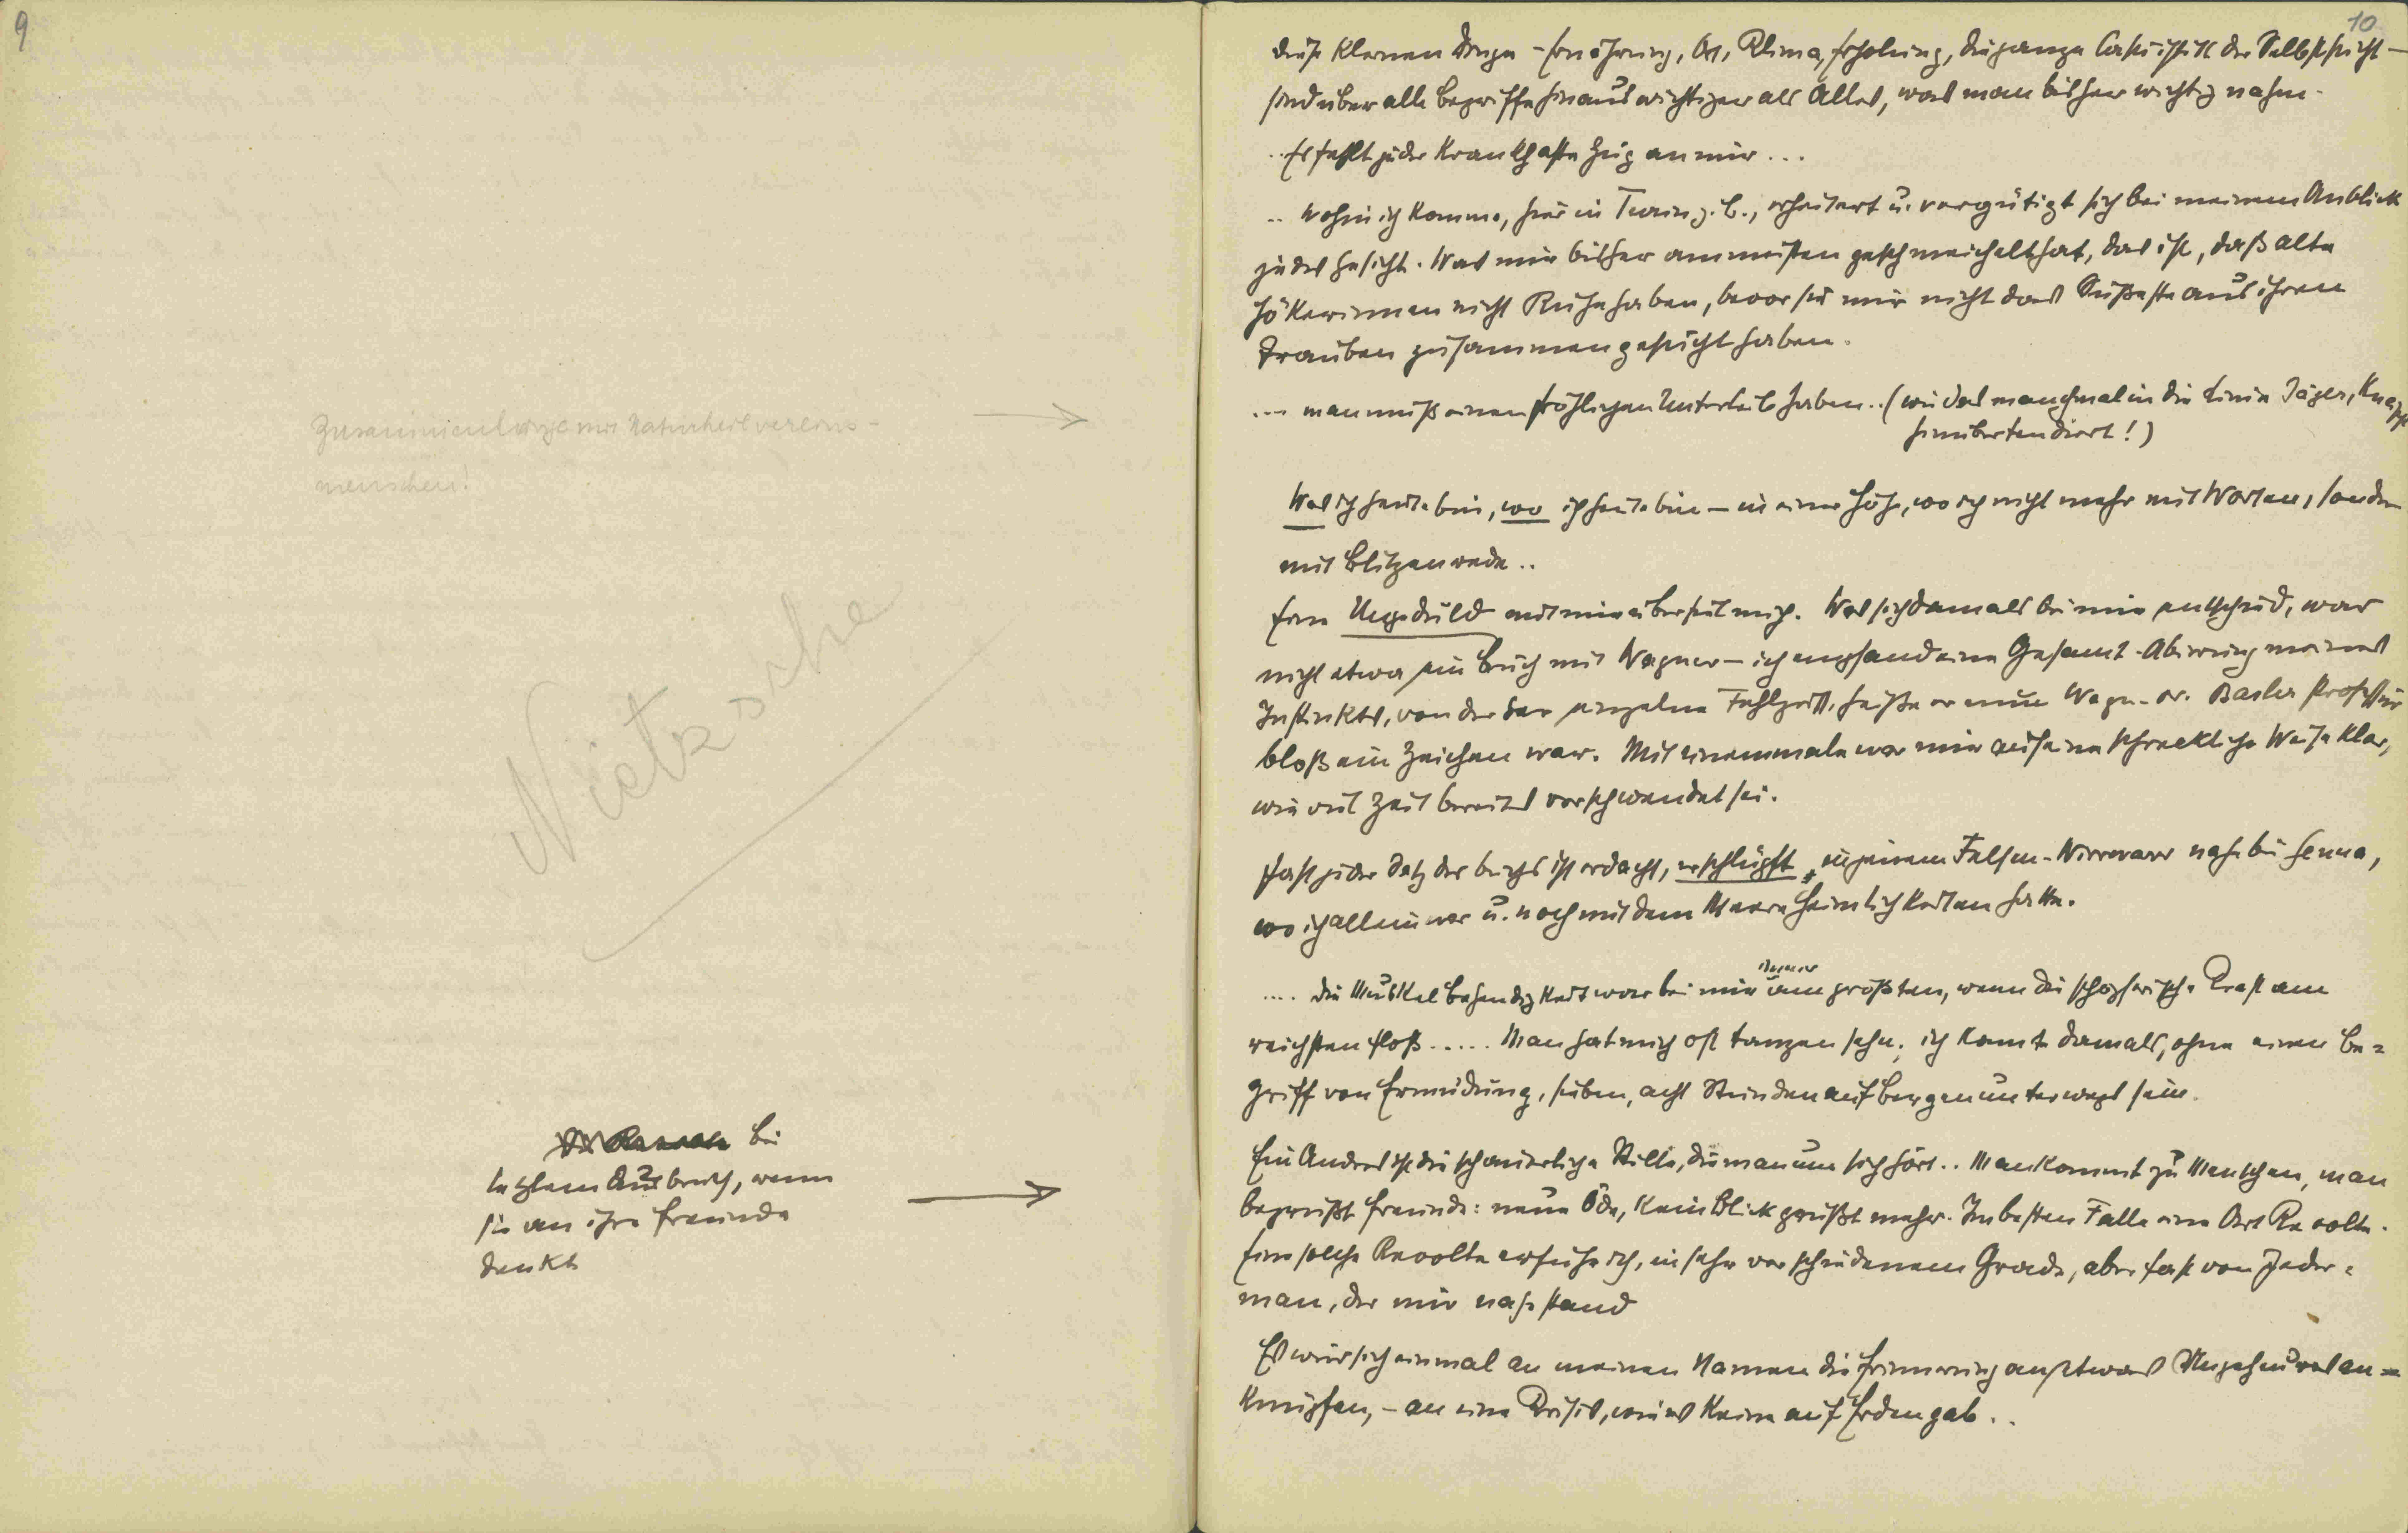 9
Zusammenhänge mit Naturheilvereins-
menschen!
Nietzsche
bei
letztem Ausbruch, wenn
sie an ihre Freunde
denkt
10
diese kleinen Dinge – Ernährung, Ort, Klima, Erholung, die ganze Casuistik der Selbstsucht –
sind über alle Begriffe hinaus wichtiger als Alles, was man bisher wichtig nahm.
.. Es fehlt jeder krankhafte Zug an mir ...
.. Wohin ich komme, hier in Turin z. B., erheitert u. vergütigt sich bei meinem Anblick
jedes Gesicht. Was mir bisher am meisten geschmeichelt hat, das ist, daß alte
Hökerinnen nicht Ruhe haben, bevor sie mir nicht das Süßeste aus ihren
Trauben zusammengesucht haben.
... man muß einen fröhlichen Unterleib haben .. (wie das manchmal in die Linie Jäger,
hinübertendiert!)
Was ich heute bin, wo ich heute bin – in einer Höhe, wo ich nicht mehr mit Worten, sondern
mit Blitzen rede ..
Eine Ungeduld mit mir überfiel mich. Was sich damals bei mir entschied, war
nicht etwa ein Bruch mit Wagner – ich empfand eine Gesamt-Abirrung meines
Instinkts, von der der einzelne Fehlgriff, heiße er nun Wagn. or. Basler Professur
bloß ein Zeichen war. Mit einemmale war mir auf eine schreckliche Weise klar,
wie viel Zeit bereits verschwendet sei.
Fast jeder Satz des Buchs ist erdacht, erschlüpft in jenem Felsen-Wirrwarr nahe bei Genua,
wo ich allein war u. noch mit dem Meere Heimlichkeiten hatte.
.... die Muskel Behendigkeit war bei mir immer am größten, wenn die schöpferische Kraft am
reichsten floß ..... Man hat mich oft tanzen sehn; ich konnte damals, ohne einen Be=
griff von Ermüdung, sieben, acht Stunden auf Bergen unterwegs sein.
Ein Andres ist die schauerliche Stille, die man um sich hört .. Man kommt zu Menschen, man
begrüßt Freunde: neue Öde, kein Blick grüßt mehr. Im besten Falle eine Art Revolte.
Eine solche Revolte erfuhr ich, in sehr verschiedenem Grade, aber fast von Jeder=
man, der mir nahe stand
Es wird sich einmal an meinen Namen die Erinnerung an etwas Ungeheures an=
knüpfen, – an eine Krisis, wie es keine auf Erden gab ..